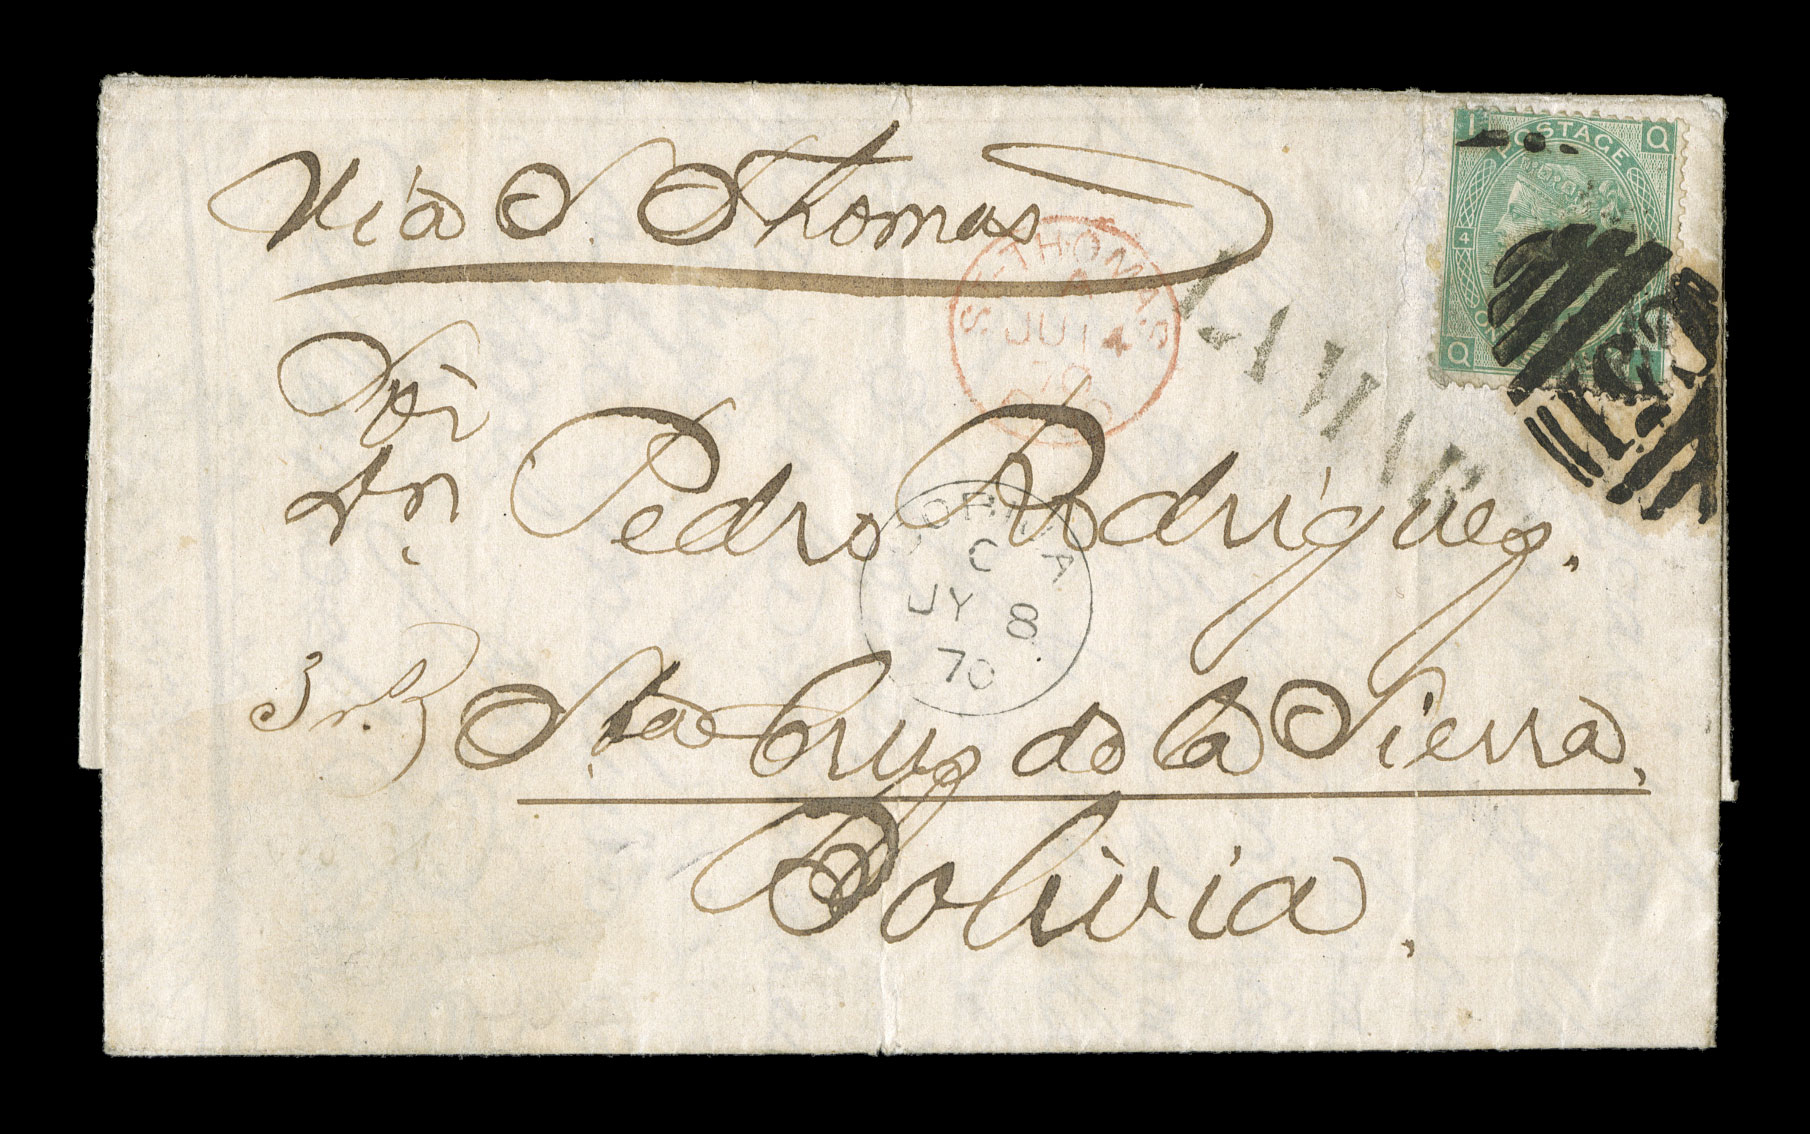 Via S. Thomas
Sor
Dn. Pedro Rodriguez.
Sta Cruz de la Sierra.
Bolivia.
I Q
POSTAGE
4
Q
ST THOMAS
A
JU 14
70
COBIJA
C
JY 8
70